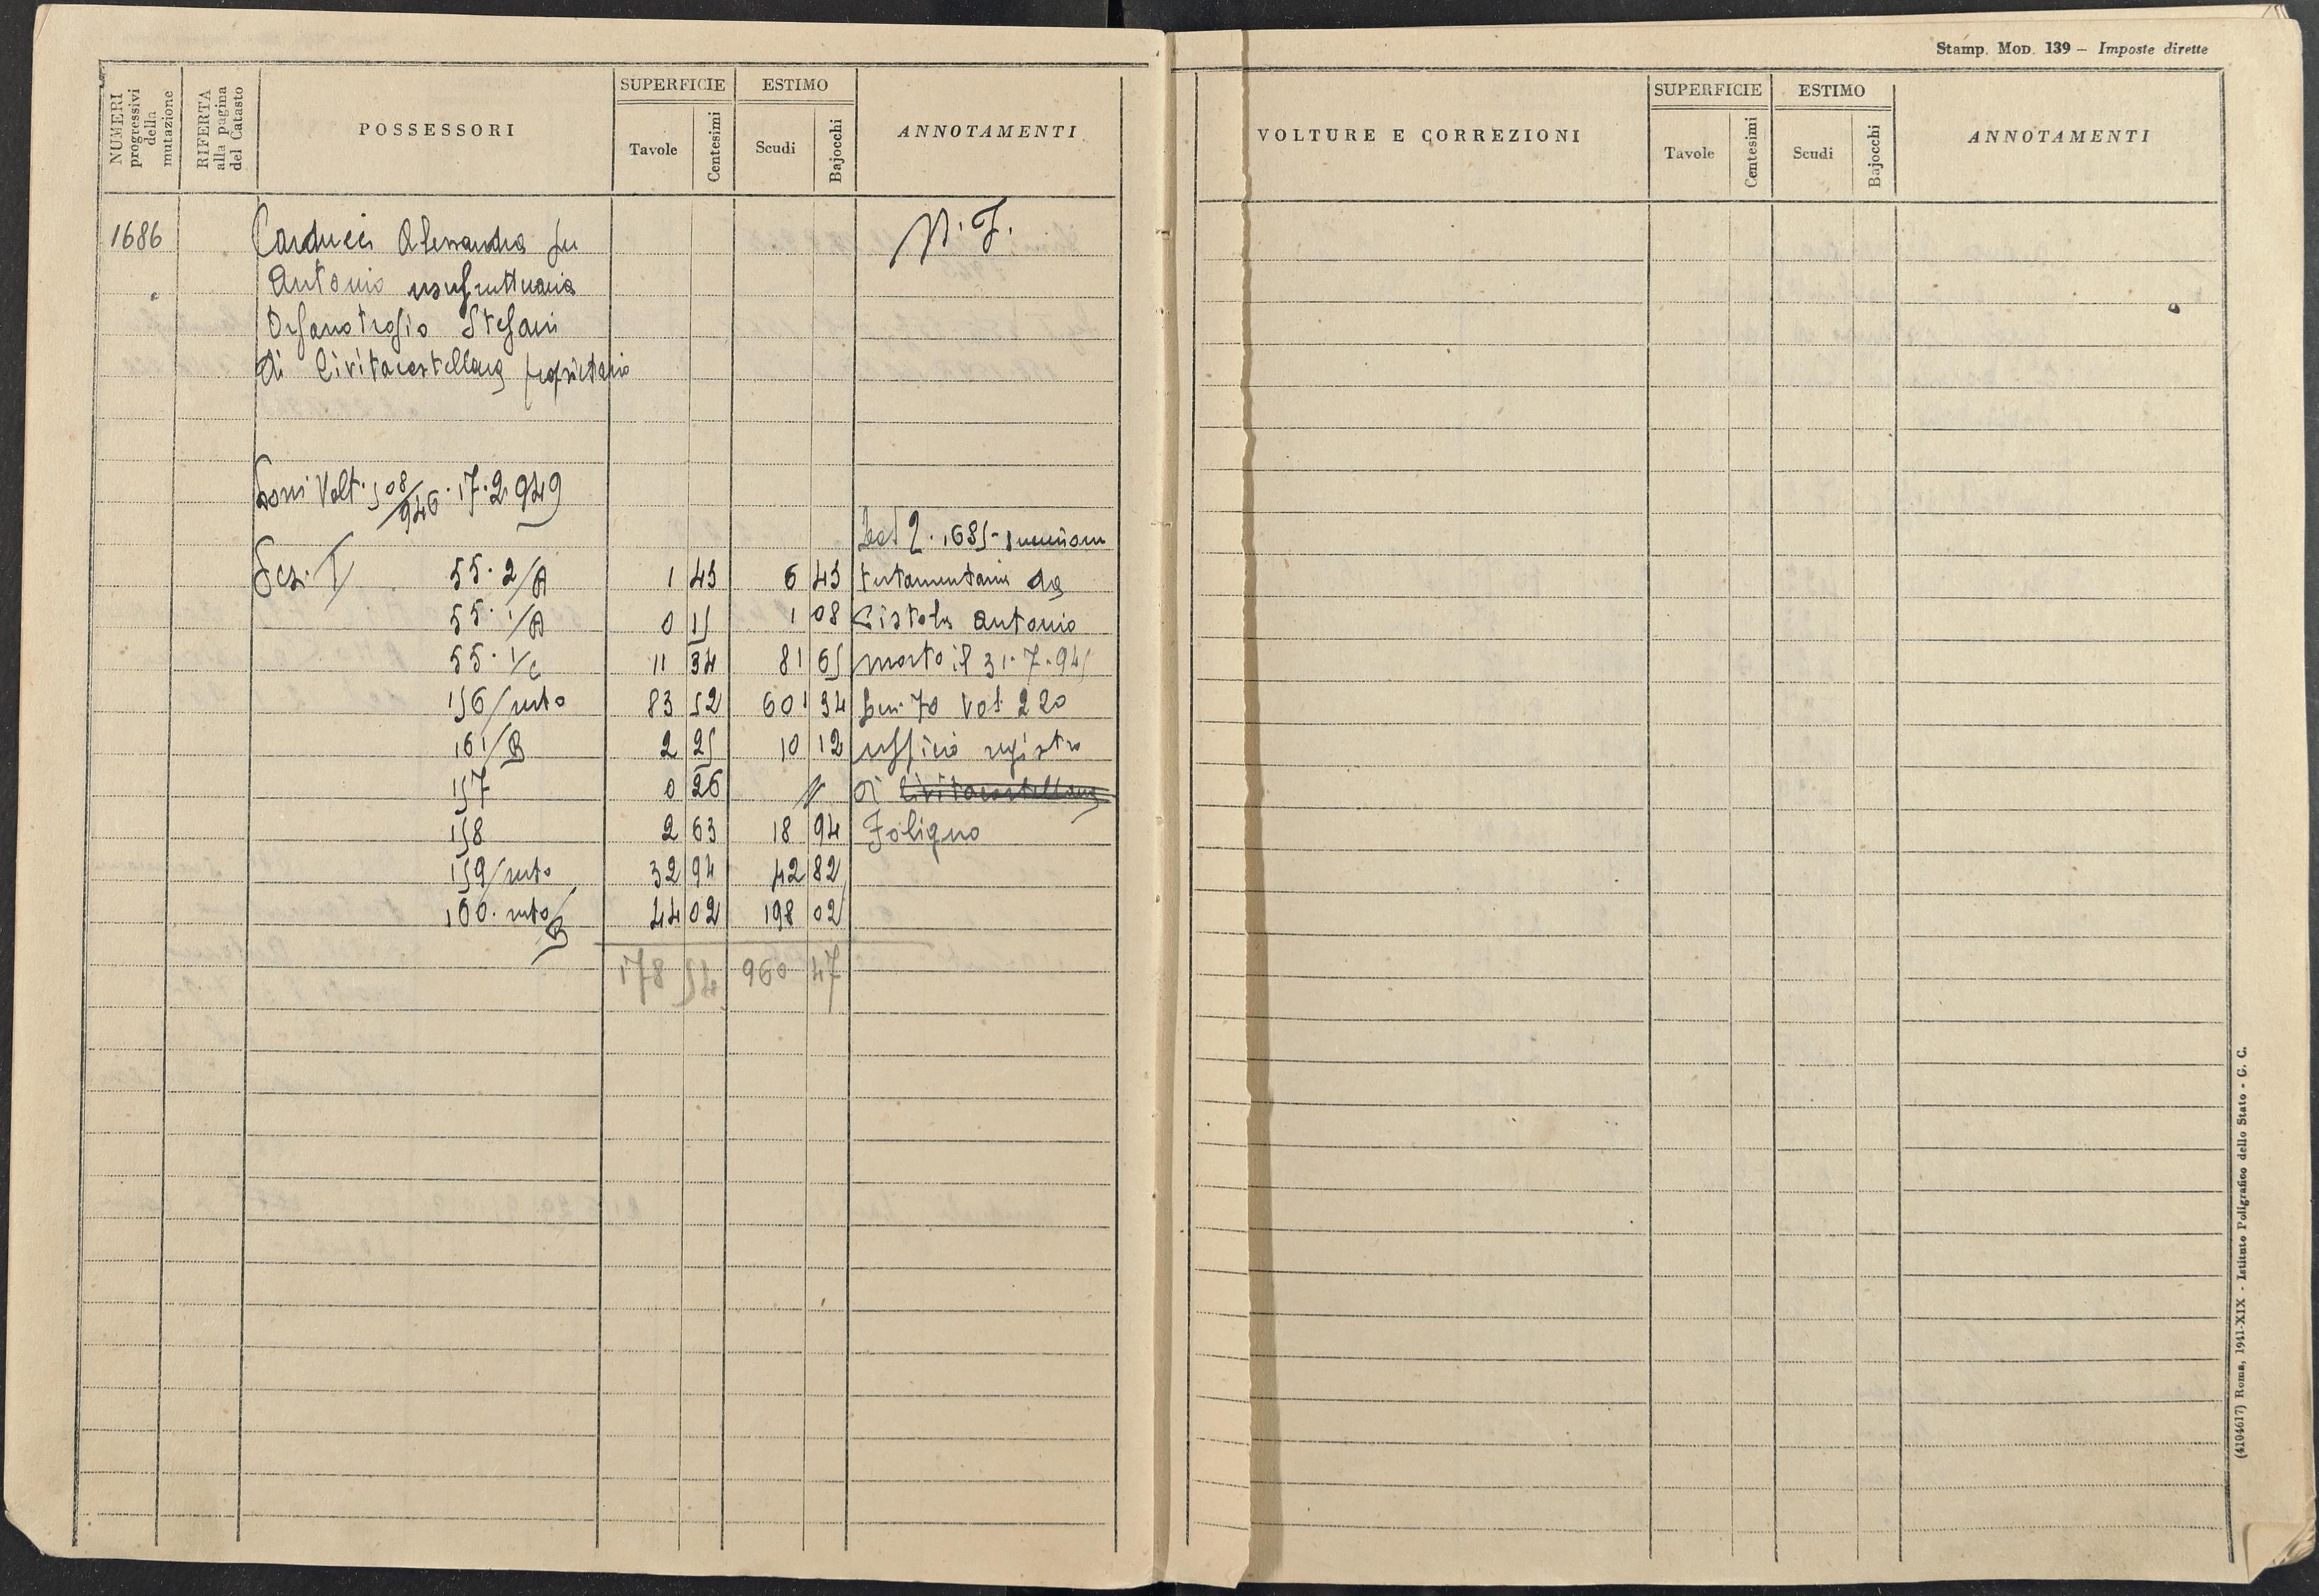 Stamp. Mod. 139 – Imposte dirette
NUMERI progressivi della mutazione
RIFERTA alla pagina del Catasto
POSSESSORI
SUPERFICIE
Tavole
Centesimi
ESTIMO
Scudi
Bajocchi
ANNOTAMENTI
VOLTURE E CORREZIONI
SUPERFICIE
Tavole
Centesimi
ESTIMO
Scudi
Bajocchi
ANNOTAMENTI
1686 Carducci Alessandra fu N. F.
Antonio usufruttuaria
Orfanotrofio Stefani
di Civitacastellana proprietario
Volt. 508/946 · 17·2·949
1685 - successione
Sez. I 55·2/A 1 43 6 43 testamentaria da
55·1/A 0 15 1 08 Cistola Antonio
55·1/C 11 34 81 65 morto il 31·7·945
156/resto 83 52 601 34 Den. 70 Vol. 220
161/B 2 25 10 12 ufficio registro
157 0 26 // di Civitacastellana
158 2 63 18 94 Foligno
159/resto 32 94 42 82
160·resto/B 44 02 198 02
178 54 960 47
(4104617) Roma, 1941-XIX - Istituto Poligrafico dello Stato - G. C.